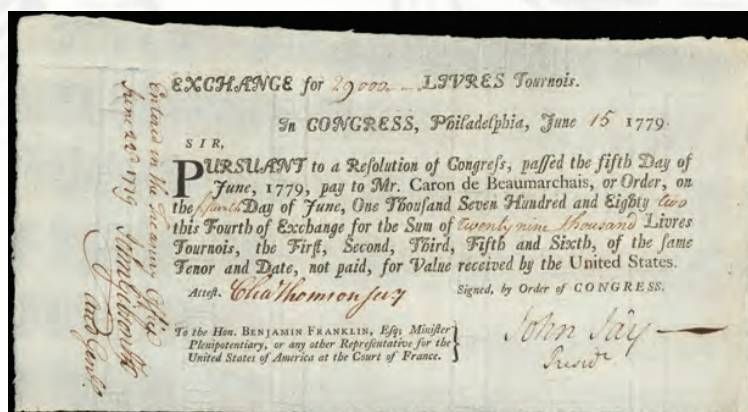 EXCHANGE for 29000 LIVRES Tournois.
In CONGRESS, Philadelphia, June 15 1779.
SIR,
PURSUANT to a Resolution of Congress, passed the fifth Day of
June, 1779, pay to Mr. Caron de Beaumarchais, or Order, on
the fifteenth Day of June, One Thousand Seven Hundred and Eighty two
this Fourth of Exchange for the Sum of twenty nine thousand Livres
Tournois, the First, Second, Third, Fifth and Sixth, of the same
Tenor and Date, not paid, for Value received by the United States.
Attest. Cha Thomson secy
Signed, by Order of CONGRESS.
To the Hon. BENJAMIN FRANKLIN, Esq; Minister
Plenipotentiary, or any other Representative for the
United States of America at the Court of France.
John Jay
Presidt
Entered in the Treasurers Office
June 22d 1779 John Gibson
Aud Genl